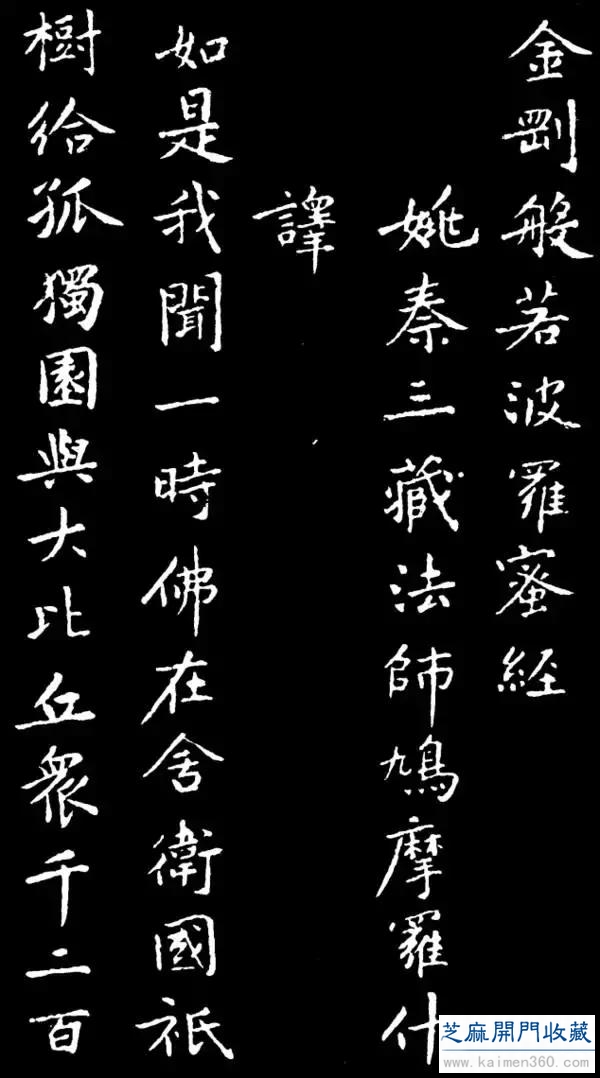 金剛般若波羅蜜經
姚秦三藏法師鳩摩羅什
譯
如是我聞一時佛在舍衛國祇
樹給孤獨園與大比丘衆千二百
芝麻開門收藏
www.kaimen360.com